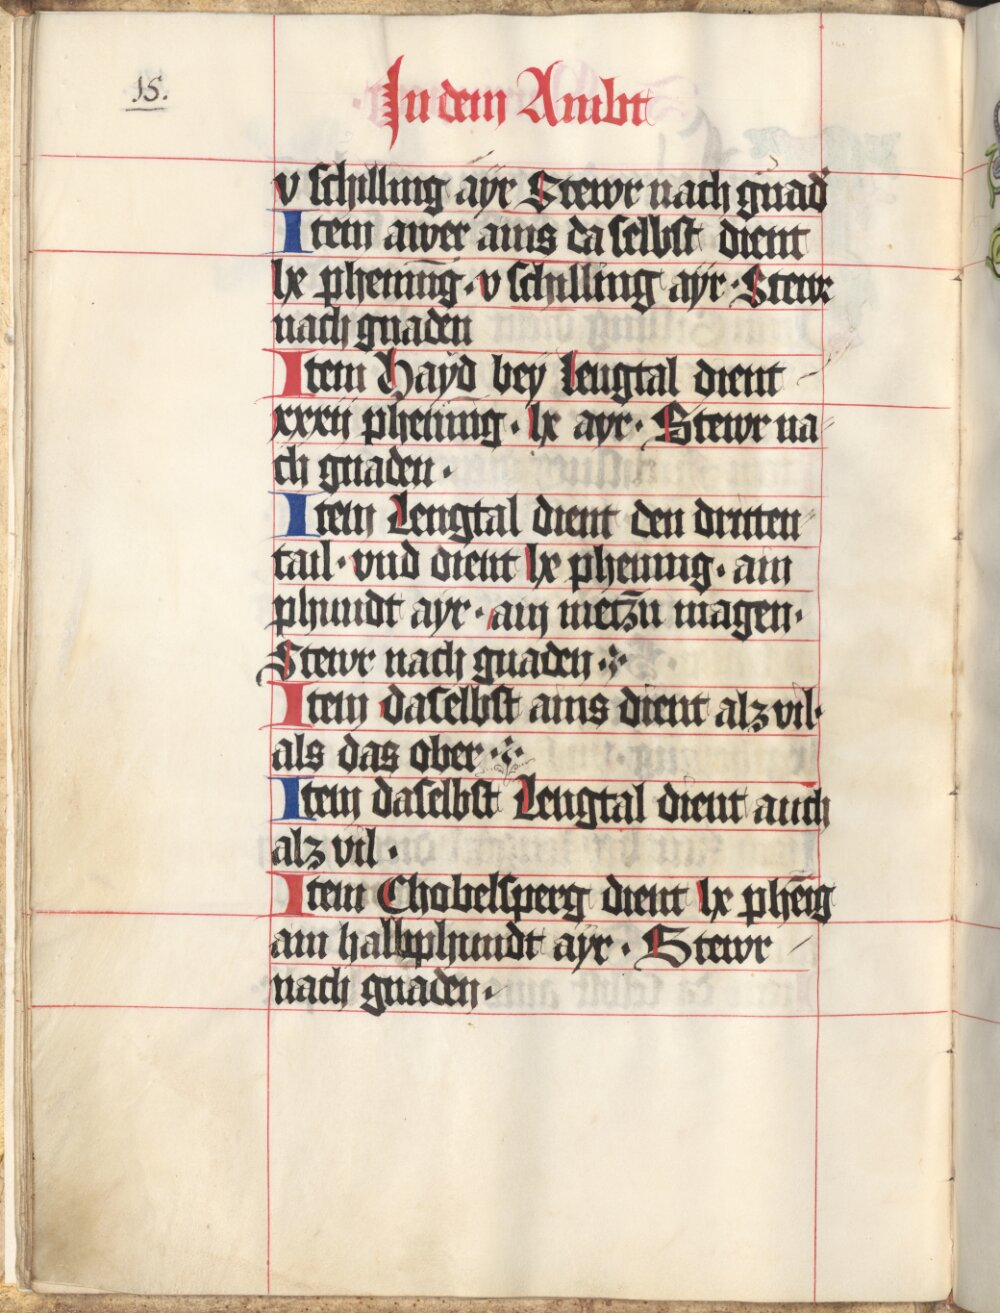 15.
In dem Ambt
v schilling ayr Stewr nach gnad
Item awer ains da selbst dient
lx phenning · v schilling aÿr · Stewr
nach gnaden
Item Hayd beÿ Lengtal dient
xxxii phenning · lx ayr · Stewr na
ch gnaden ·
Item Lengtal dient den dritten
tail · vnd dient lx phennig · ain
phundt ayr · ain metzn magen ·
Stewr nach gnaden
Item daselbst ains dient alz vil
als das ober
Item daselbst Lengtal dient auch
alz vil ·
Item Chobelsperg dient lx phenig
ain halbphundt aÿr · Stewr
nach gnaden ·